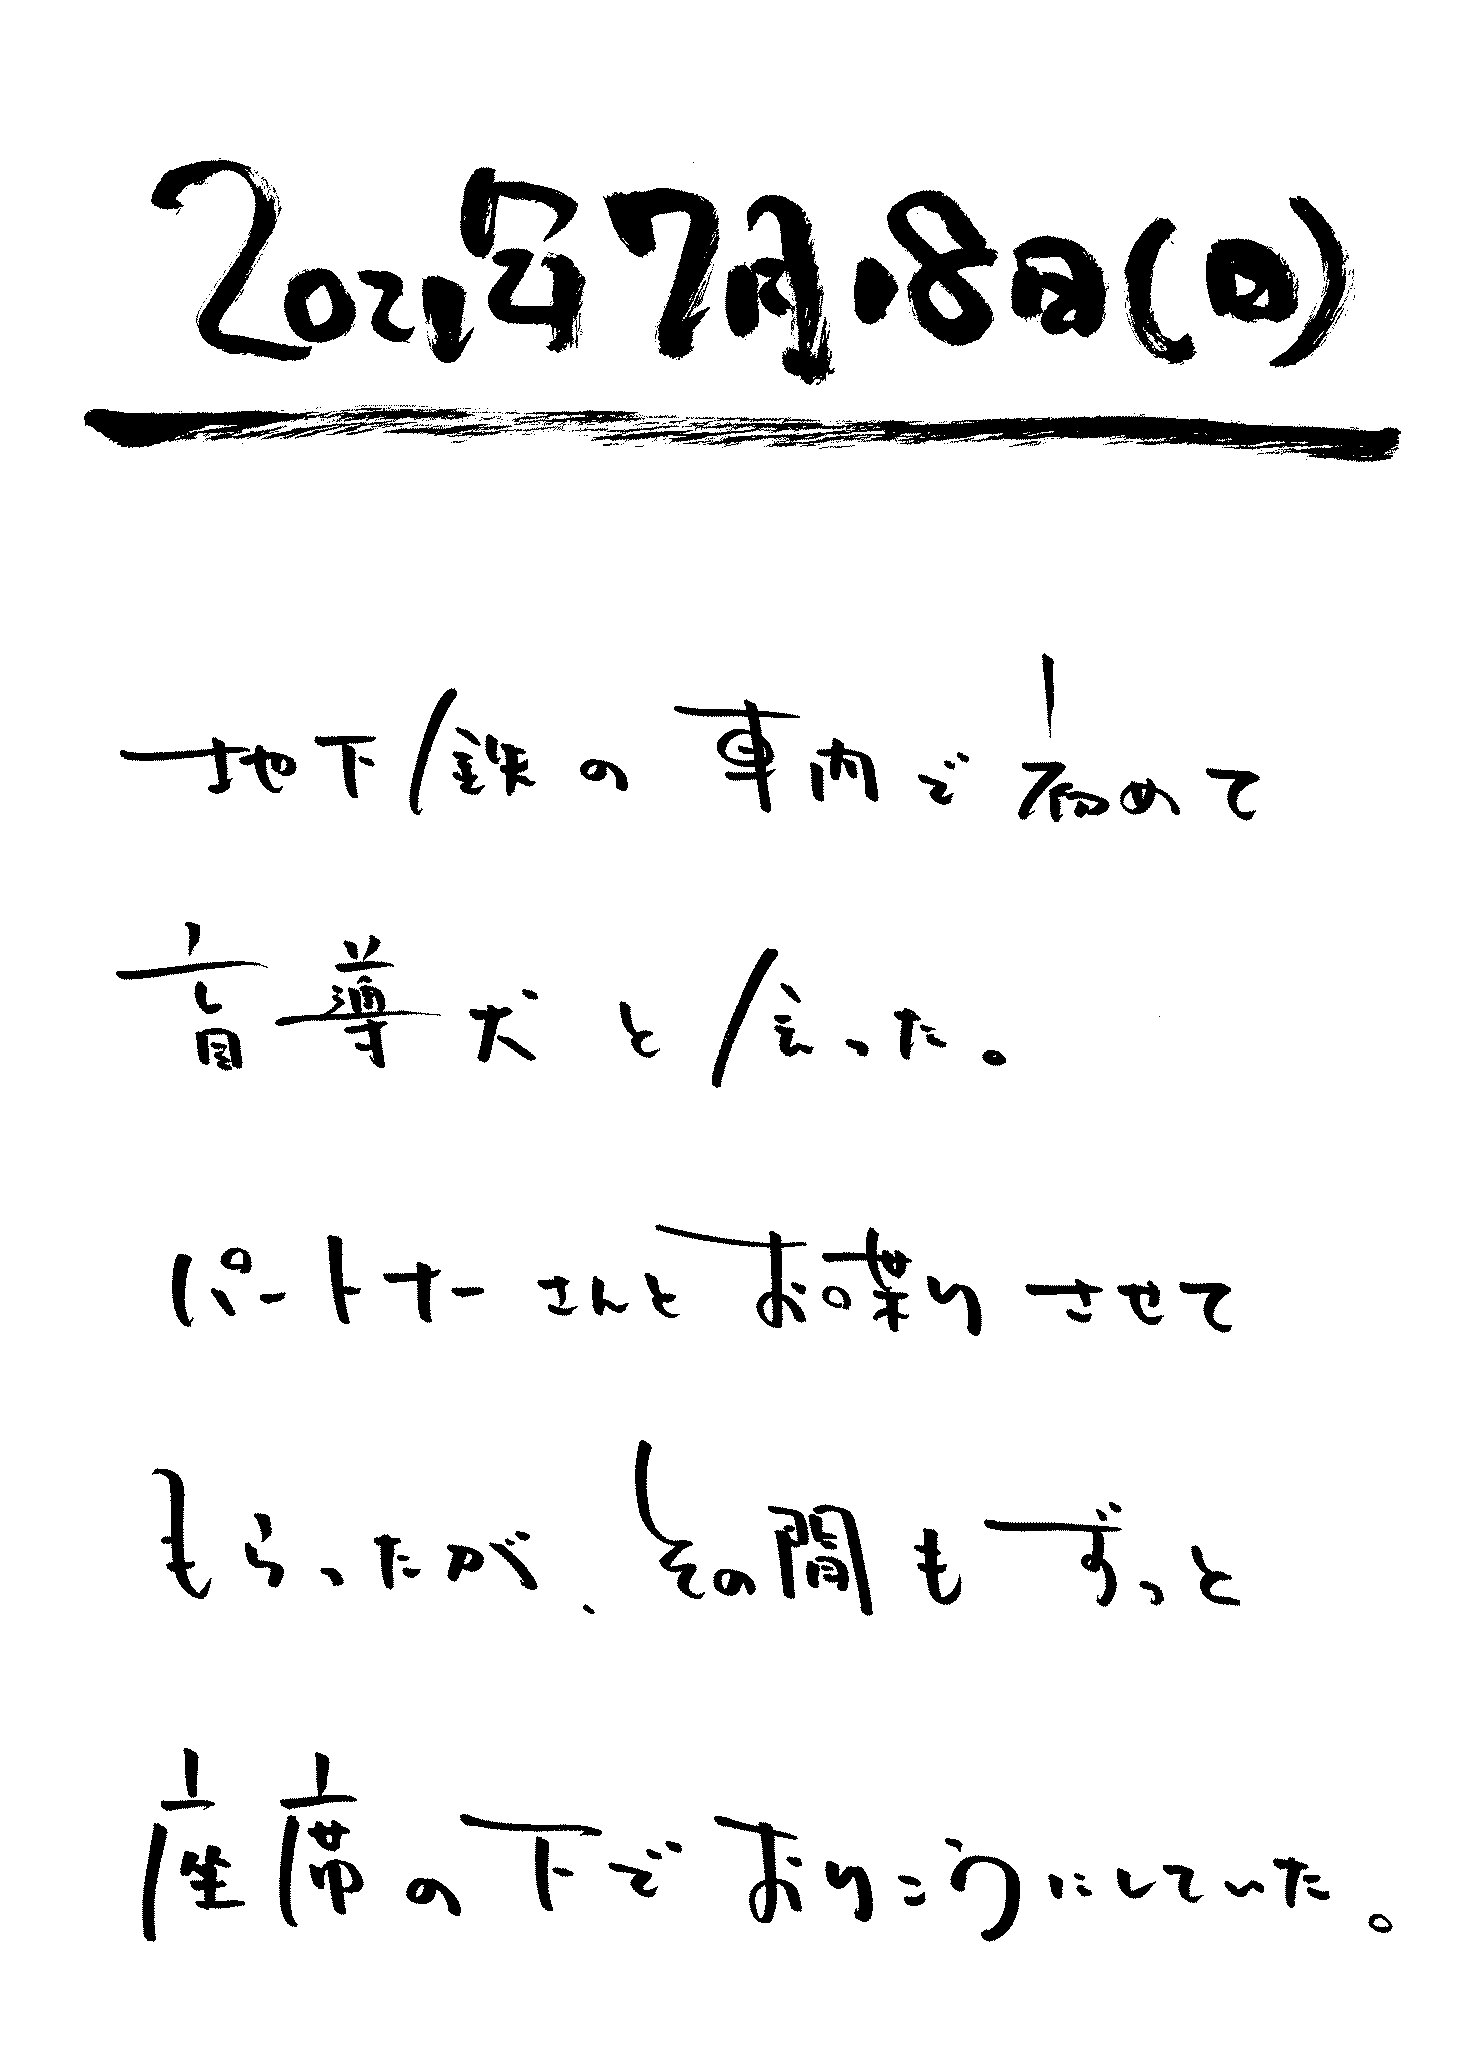 2021年7月18日(日)
地下鉄の車内で初めて
盲導犬と会った。
パートナーさんとお喋りさせて
もらったが、その間もずっと
座席の下でおりこうにしていた。